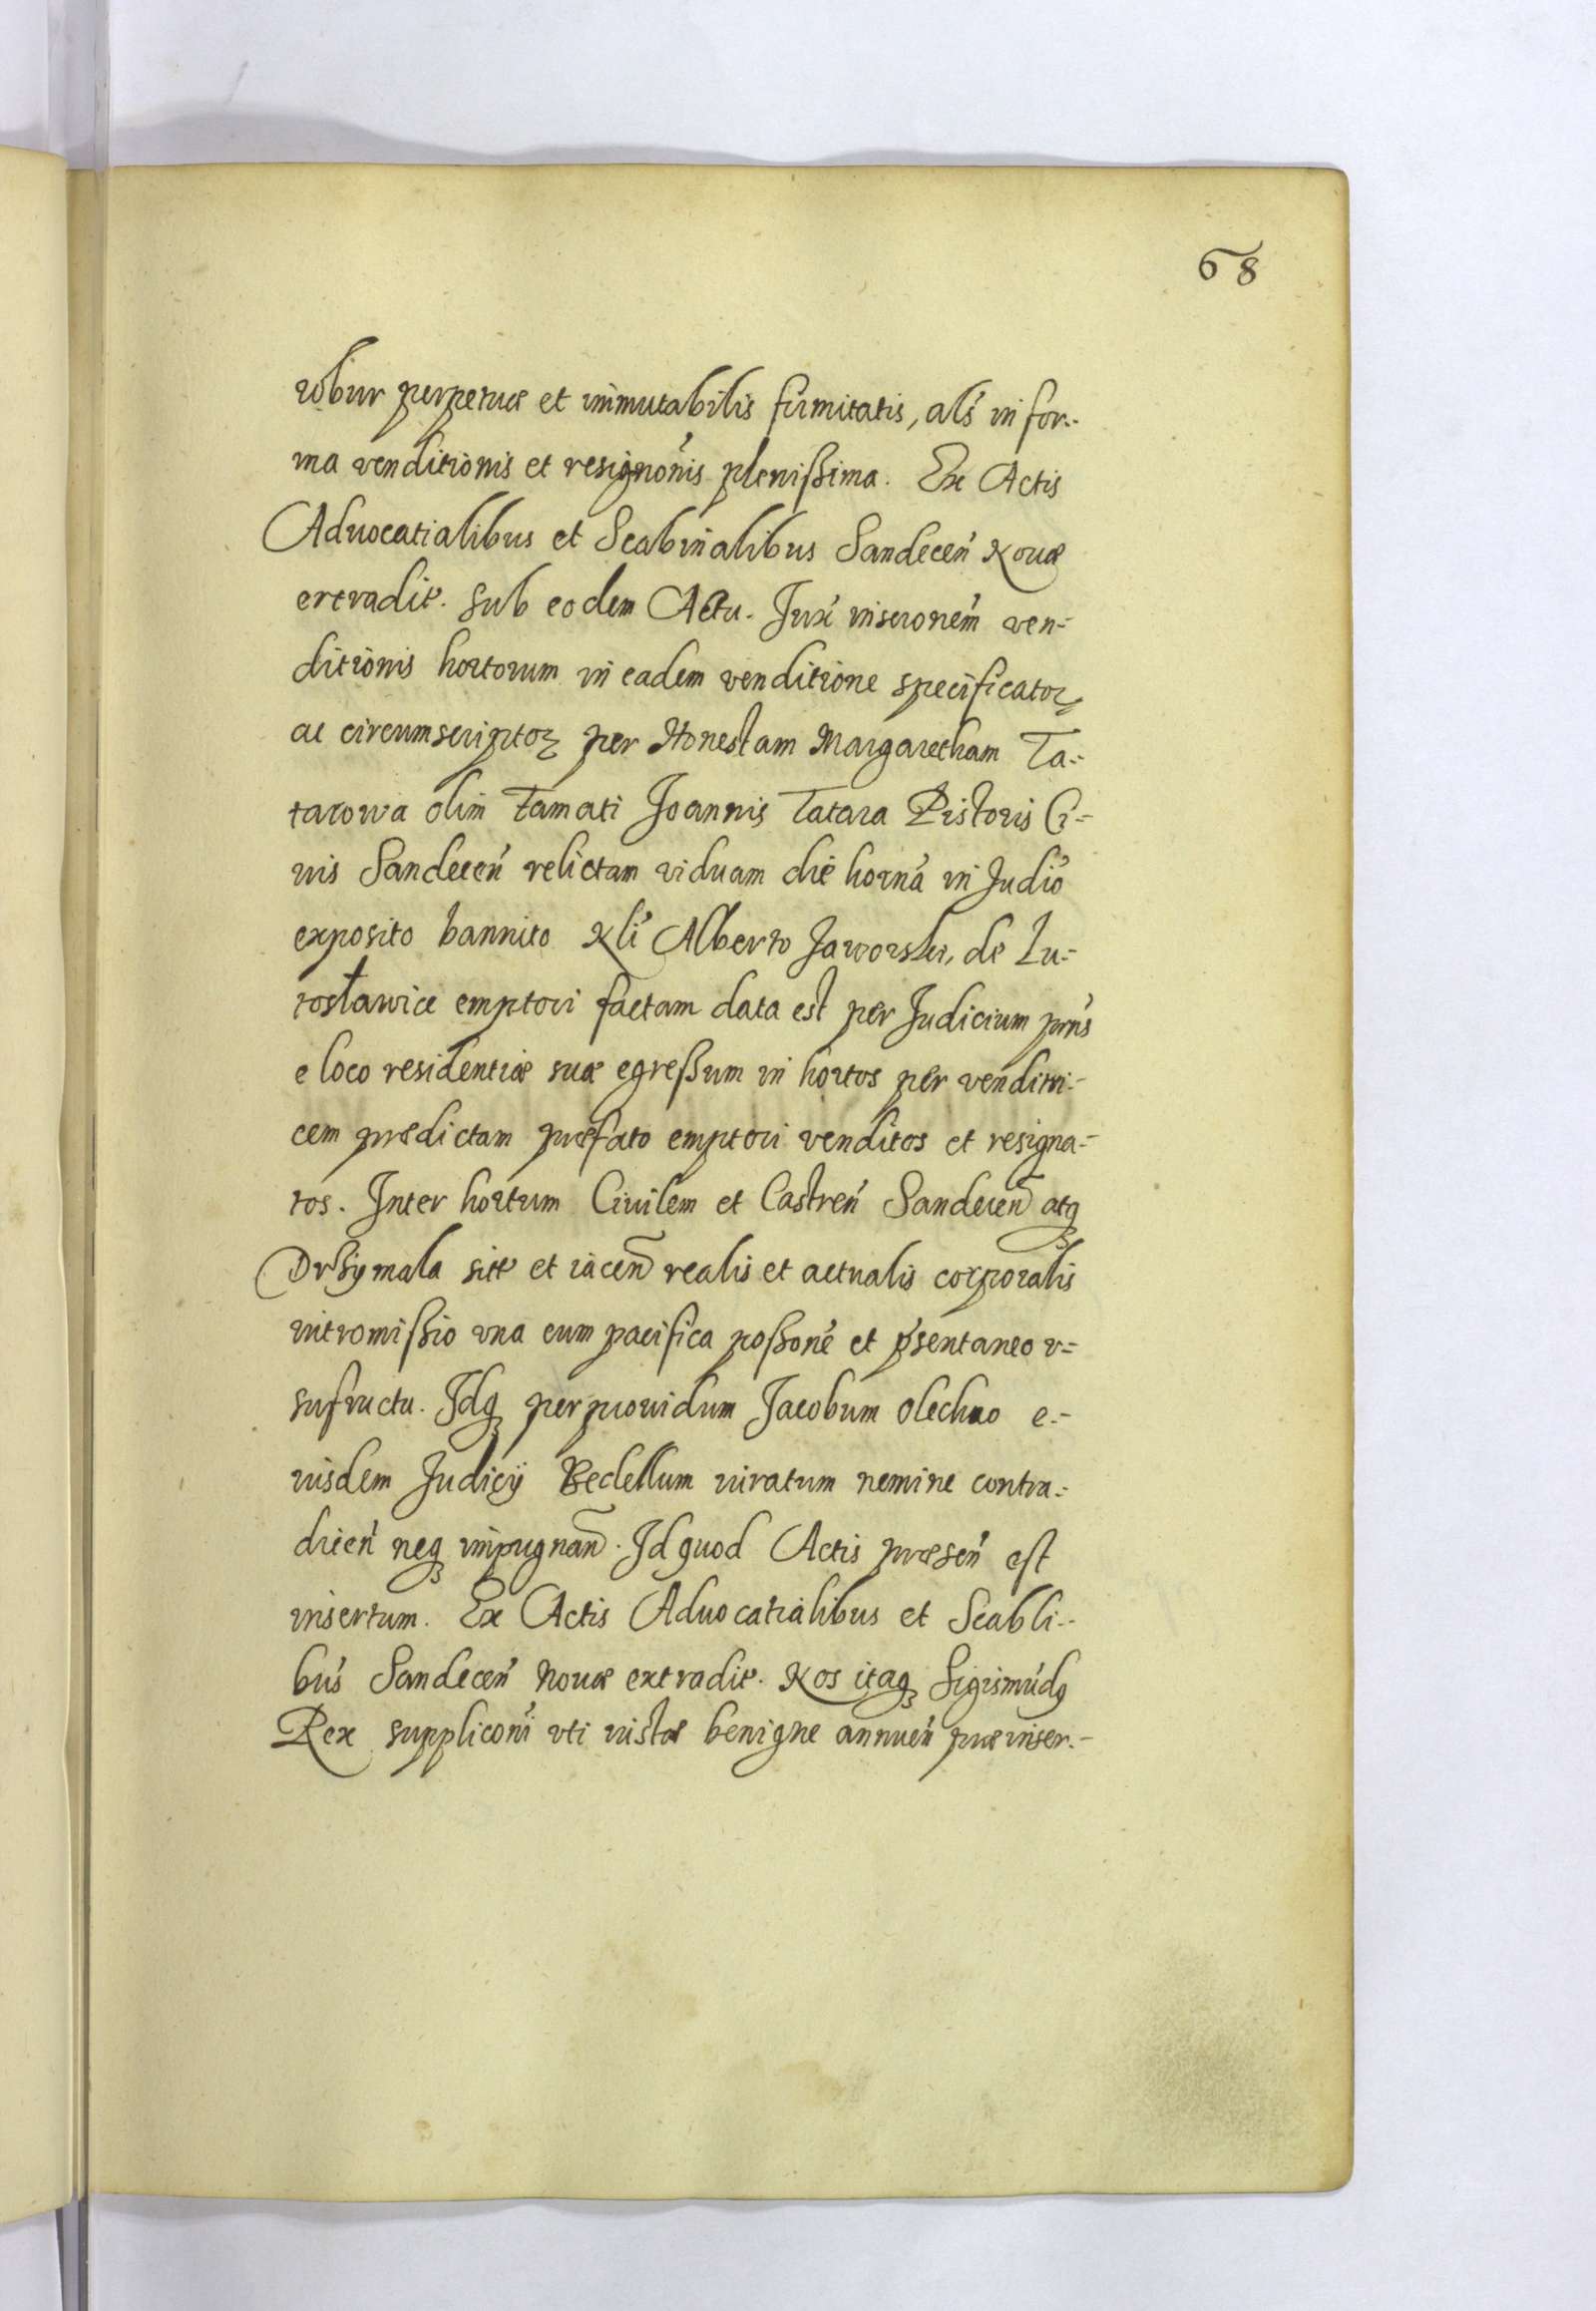 68
robur perpetuæ et immutabilis firmitatis, als in for-
ma venditionis et resignonis plenißima. Ex Actis
Aduocatialibus et Scabinalibus Sandecen Nouæ
extradit. Sub eodem Actu. Jux inscronem ven-
ditionis hortorum in eadem venditione specificatorꝝ
ac circumscriptoꝝ per Honestam Margaretham Ta-
tarowa olim Famati Joannis Tatara Pistoris Ci-
uis Sandecen relictam viduam die horna in Judio
exposito bannito Nli Alberto Jaworski, de Lu-
rosławice emptori factam data est per Judicium prns
e loco residentiæ suæ egreßum in hortos per venditri-
cem prædictam præfato emptori venditos et resigna-
tos. Inter hortum Ciuilem et Castren Sandecen atq
Drsymala sitt et iacen realis et actualis corporalis
intromißio vna cum pacifica poßone et psentaneo v-
sufructu. Idq per prouidum Jacobum Olechno e-
iusdem Judicij Bedellum iuratum nemine contra-
dicen neq impugnan. Id quod Actis præsen est
insertum. Ex Actis Aduocatialibus et Scabli-
bus Sandecen Nouæ extradit. Nos itaq Sigismudq
Rex suppliconi vti iustæ benigne annuen præinser-